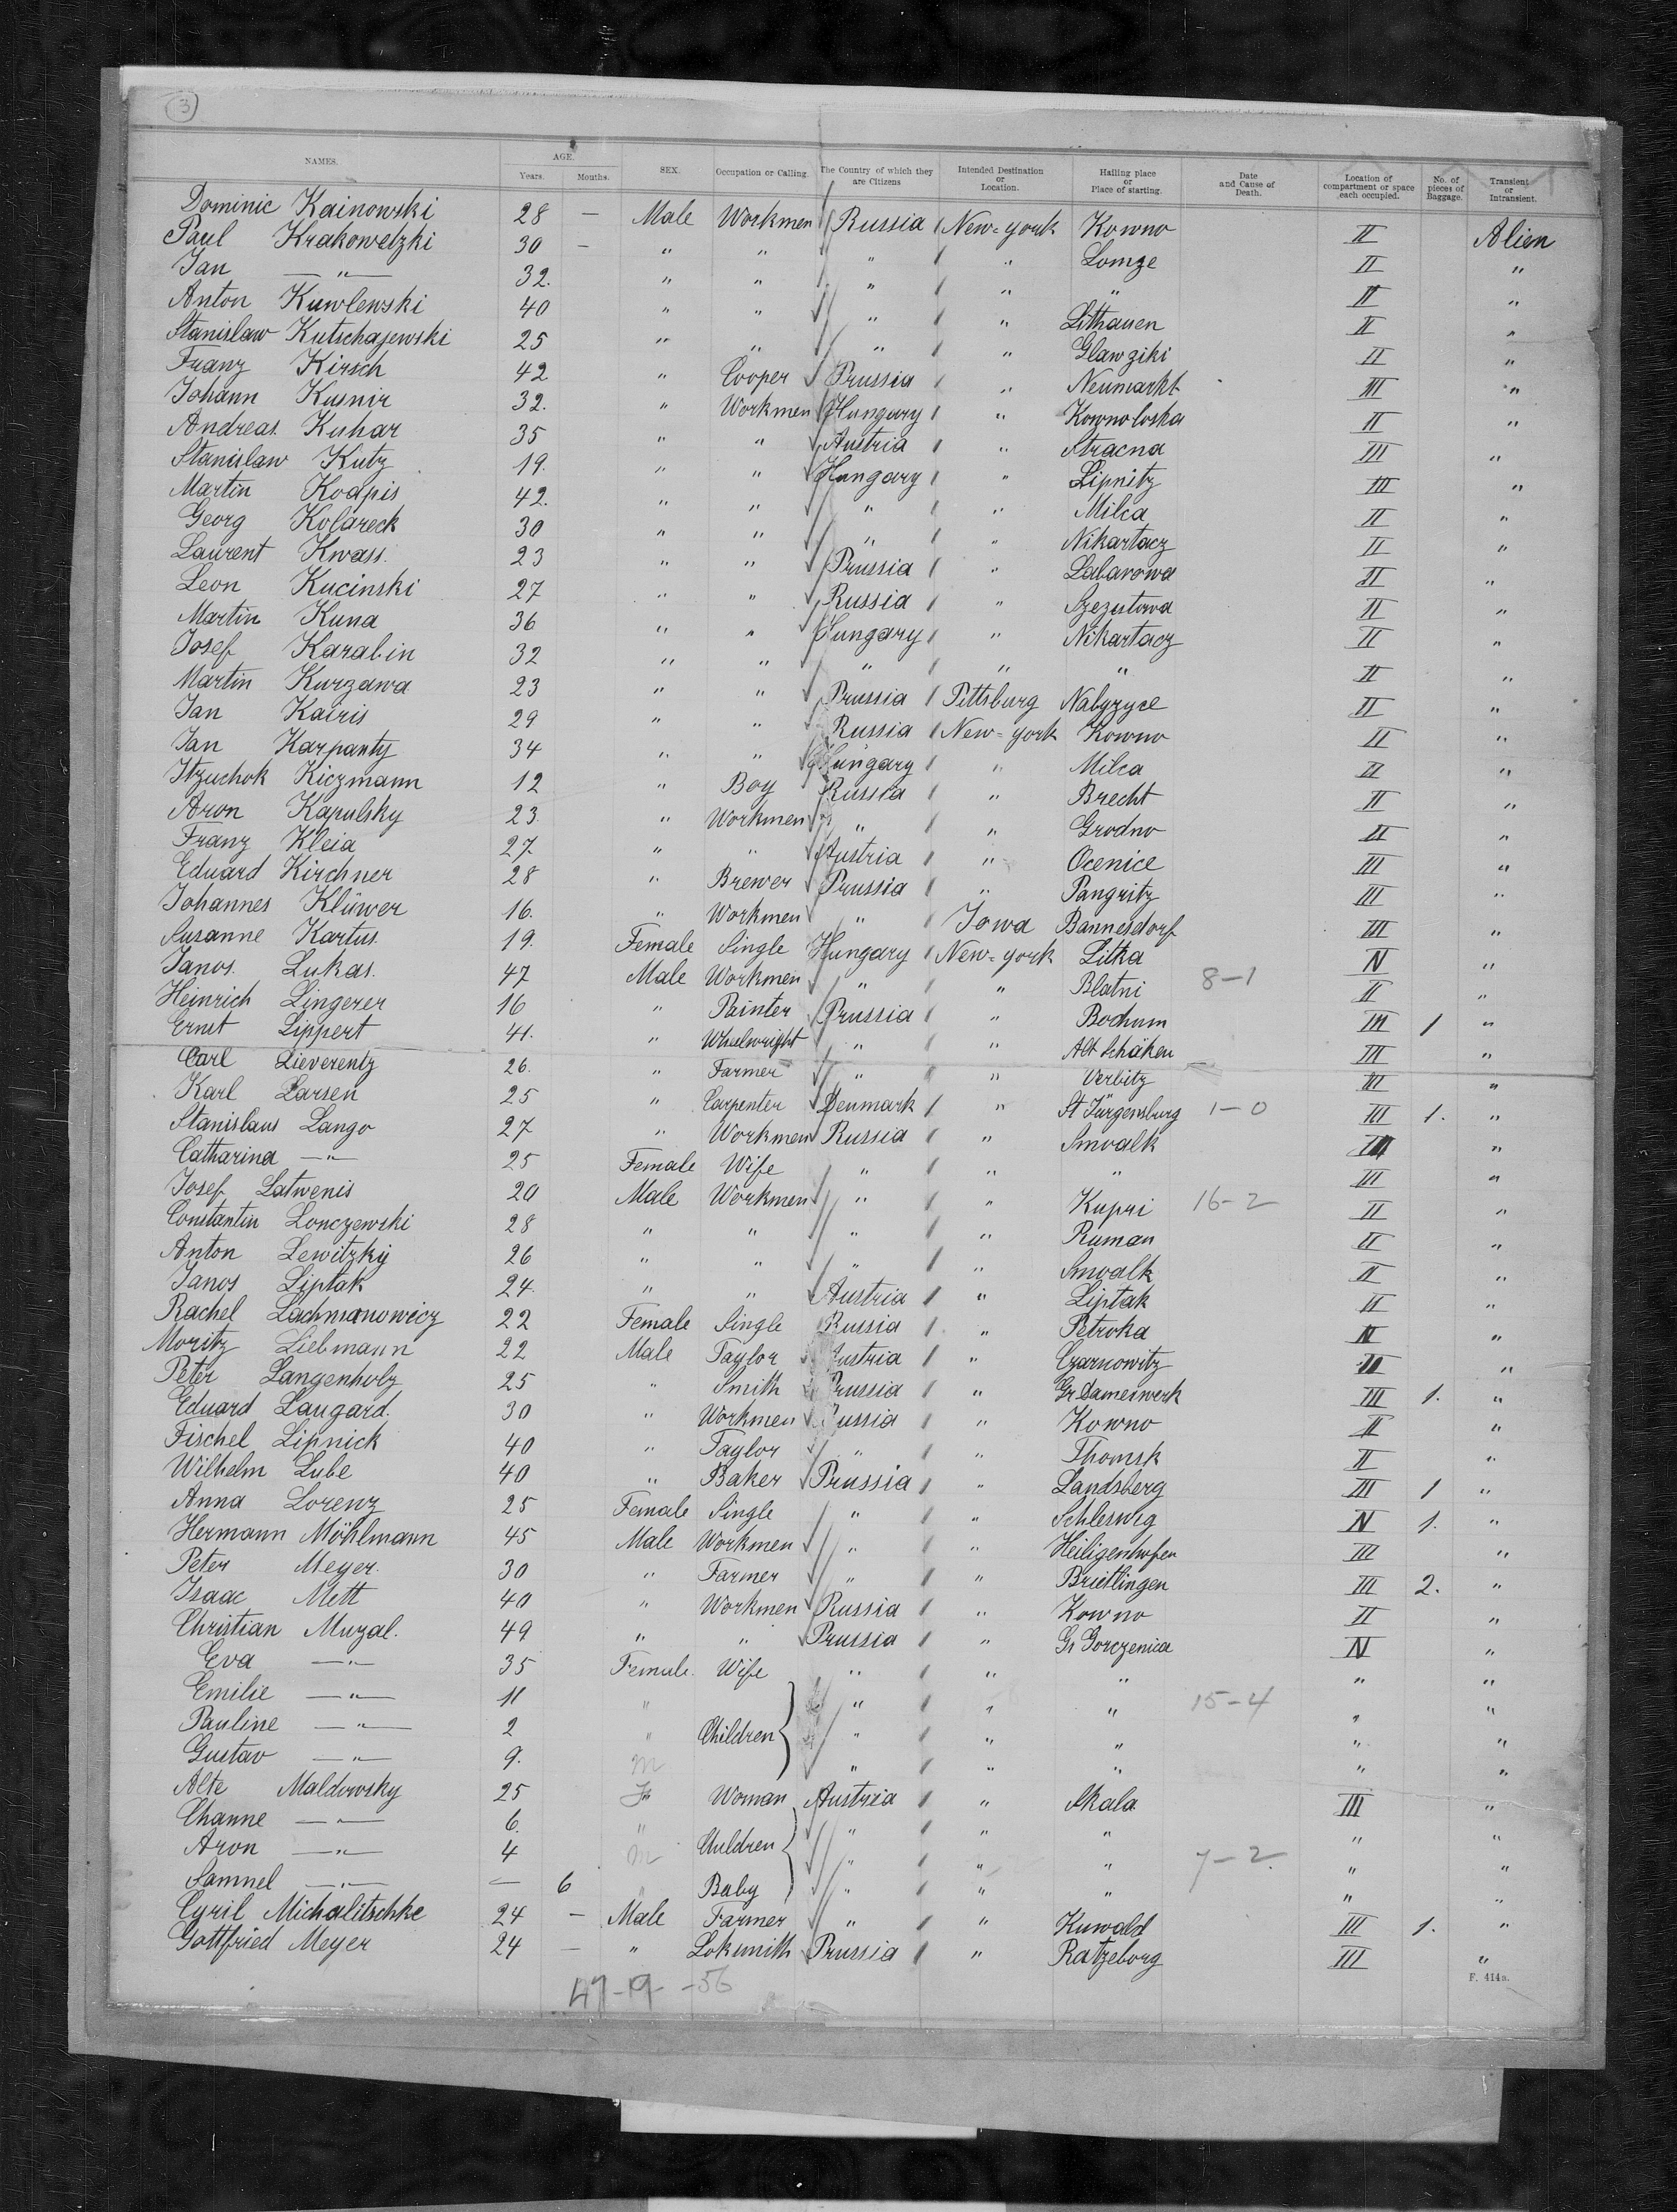 3
NAMES. AGE. Years. Months. SEX. Occupation or Calling. The Country of which they are Citizens Intended Destination or Location. Hailing place or Place of starting. Date and Cause of Death. Location of compartment or space each occupied. No. of pieces of Baggage. Transient or Intransient.
Dominic Kainowski 28 — Male Workmen Russia New-york Kowno II Alien
Paul Krakowetzki 30 — " " " " Lomze II "
Jan —"— 32. " " " " " II "
Anton Kuwlewski 40 " " " " Lithauen II "
Stanislaw Kutschajewski 25 " " " " Glawziki II "
Franz Kirsch 42 " Cooper Prussia " Neumarkt III "
Johann Kusnir 32. " Workmen Hungary " Kownoloska II "
Andreas Kuhar 35 " " Austria " Stracna III "
Stanislaw Kutz 19. " " Hungary " Lipnitz III "
Martin Koapis 42. " " " " Milca II "
Georg Kolareck 30 " " " " Nikartacz II "
Laurent Kwass. 23 " " Prussia " Labarowa II "
Leon Kucinski 27 " " Russia " Szezutowa II "
Martin Kuna 36 " " Hungary " Nikartacz II "
Josef Karabin 32 " " " " " II "
Martin Kurzawa 23 " " Prussia Pittsburg Nabyzyce II "
Jan Kairis 29 " " Russia New-york Kowno II "
Jan Karpanty 34 " " Hungary " Milca II "
Itzuchok Kiczmann 12 " Boy Russia " Brecht II "
Aron Kapulsky 23 " Workmen " " Grodno II "
Franz Kleia 27. " " Austria " Ocenice III "
Eduard Kirchner 28 " Brewer Prussia " Pangritz III "
Johannes Klüwer 16. " Workmen " Iowa Bannesdorf III "
Susanne Kartus. 19. Female Single Hungary New-york Litka N "
Janos. Lukas. 47 Male Workmen " " Blatni 8-1 II "
Heinrich Lingerer 16 " Painter Prussia " Bochum III 1 "
Ernst Lippert 41. " Whelwright " " Alt Schäken III "
Carl Lieverentz 26. " Farmer " " Verbitz III "
Karl Larsen 25 " Carpenter Denmark " St Jürgensburg 1-0 III 1. "
Stanislaus Lango 27 " Workmen Russia " Suwalk III "
Catharina —"— 25 Female Wife " " " III "
Josef Latwenis 20 Male Workmen " " Kupri 16-2 II "
Constantin Lonczewski 28 " " " " Ruman II "
Anton Lewitzky 26 " " " " Suwalk II "
Janos Liptak 24. " " Austria " Liptak II "
Rachel Lachmanowicz 22 Female Single Russia " Petroka N "
Moritz Liebmann 22 Male Taylor Austria " Czarnowitz III "
Peter Langenholz 25 " Smith Prussia " Gr. Damerwerk III 1. "
Eduard Laugard. 30 " Workmen Russia " Kowno II "
Fischel Lipnick 40 " Taylor " " Thomsk II "
Wilhelm Lube 40 " Baker Prussia " Landsberg III 1 "
Anna Lorenz 25 Female Single " " Schleswig N 1. "
Hermann Möhlmann 45 Male Workmen " " Heiligenhafen III "
Peter Meyer. 30 " Farmer " " Brietlingen III 2. "
Isaac Mett 40 " Workmen Russia " Kowno II "
Christian Muzal. 49 " " Prussia " Gr Gorczenica N "
Eva —"— 35 Female. Wife " " " " "
Emilie —"— 11 " Children " " " 15-4 " "
Pauline —"— 2 " " " " " "
Gustav —"— 9. m " " " " "
Alte Maldowsky 25 F Woman Austria " Skala III "
Channe —"— 6. " Children " " " " "
Aron —"— 4 m " " " 7-2. " "
Samuel —"— — 6 " Baby " " " " "
Cyril Michalitschke 24 — Male Farmer " " Kuwald III 1. "
Gottfried Meyer 24 — " Loksmith Prussia " Ratzeborg III "
47-9-56
F. 414a.